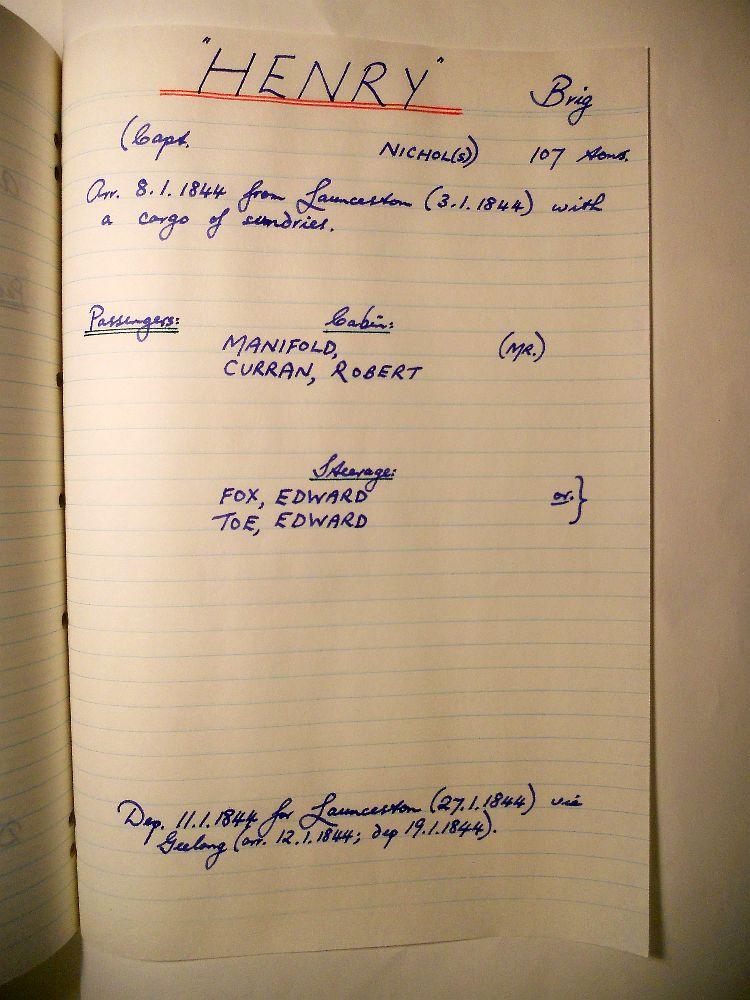 "HENRY" Brig
(Capt. NICHOL(S)) 107 tons.
Arr. 8.1.1844 from Launceston (3.1.1844) with
a cargo of sundries.
Passengers: Cabin:
MANIFOLD, (MR.)
CURRAN, ROBERT
Steerage:
FOX, EDWARD or. }
TOE, EDWARD
Dep. 11.1.1844 for Launceston (27.1.1844) via
Geelong (arr. 12.1.1844; dep 19.1.1844).